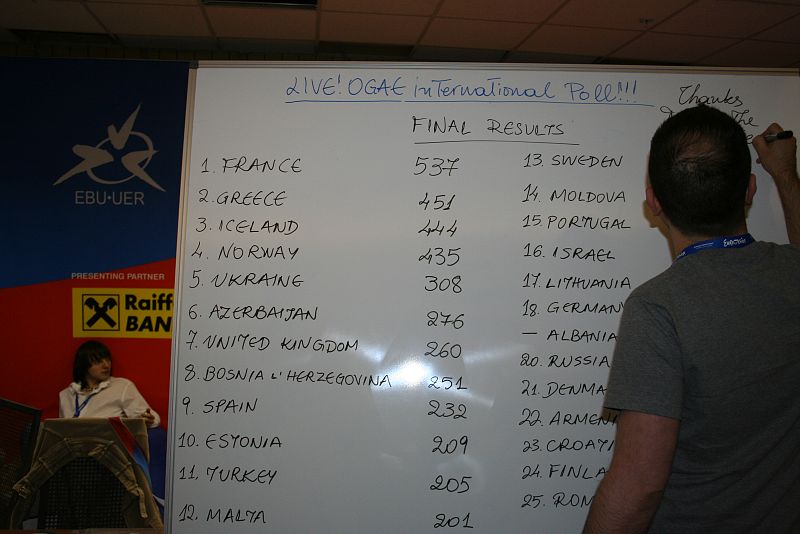 LIVE! OGAE international Poll!!!
Thanks
The
FINAL RESULTS
1. FRANCE 537
2. GREECE 451
3. ICELAND 444
4. NORWAY 435
5. UKRAINE 308
6. AZERBAIJAN 276
7. UNITED KINGDOM 260
8. BOSNIA & HERZEGOVINA 251
9. SPAIN 232
10. ESTONIA 209
11. TURKEY 205
12. MALTA 201
13. SWEDEN
14. MOLDOVA
15. PORTUGAL
16. ISRAEL
17. LITHUANIA
18. GERMANY
— ALBANIA
20. RUSSIA
21. DENMA
22. ARMENI
23. CROATI
24. FINLA
25. ROM
EBU·UER
PRESENTING PARTNER
Raiff
BAN